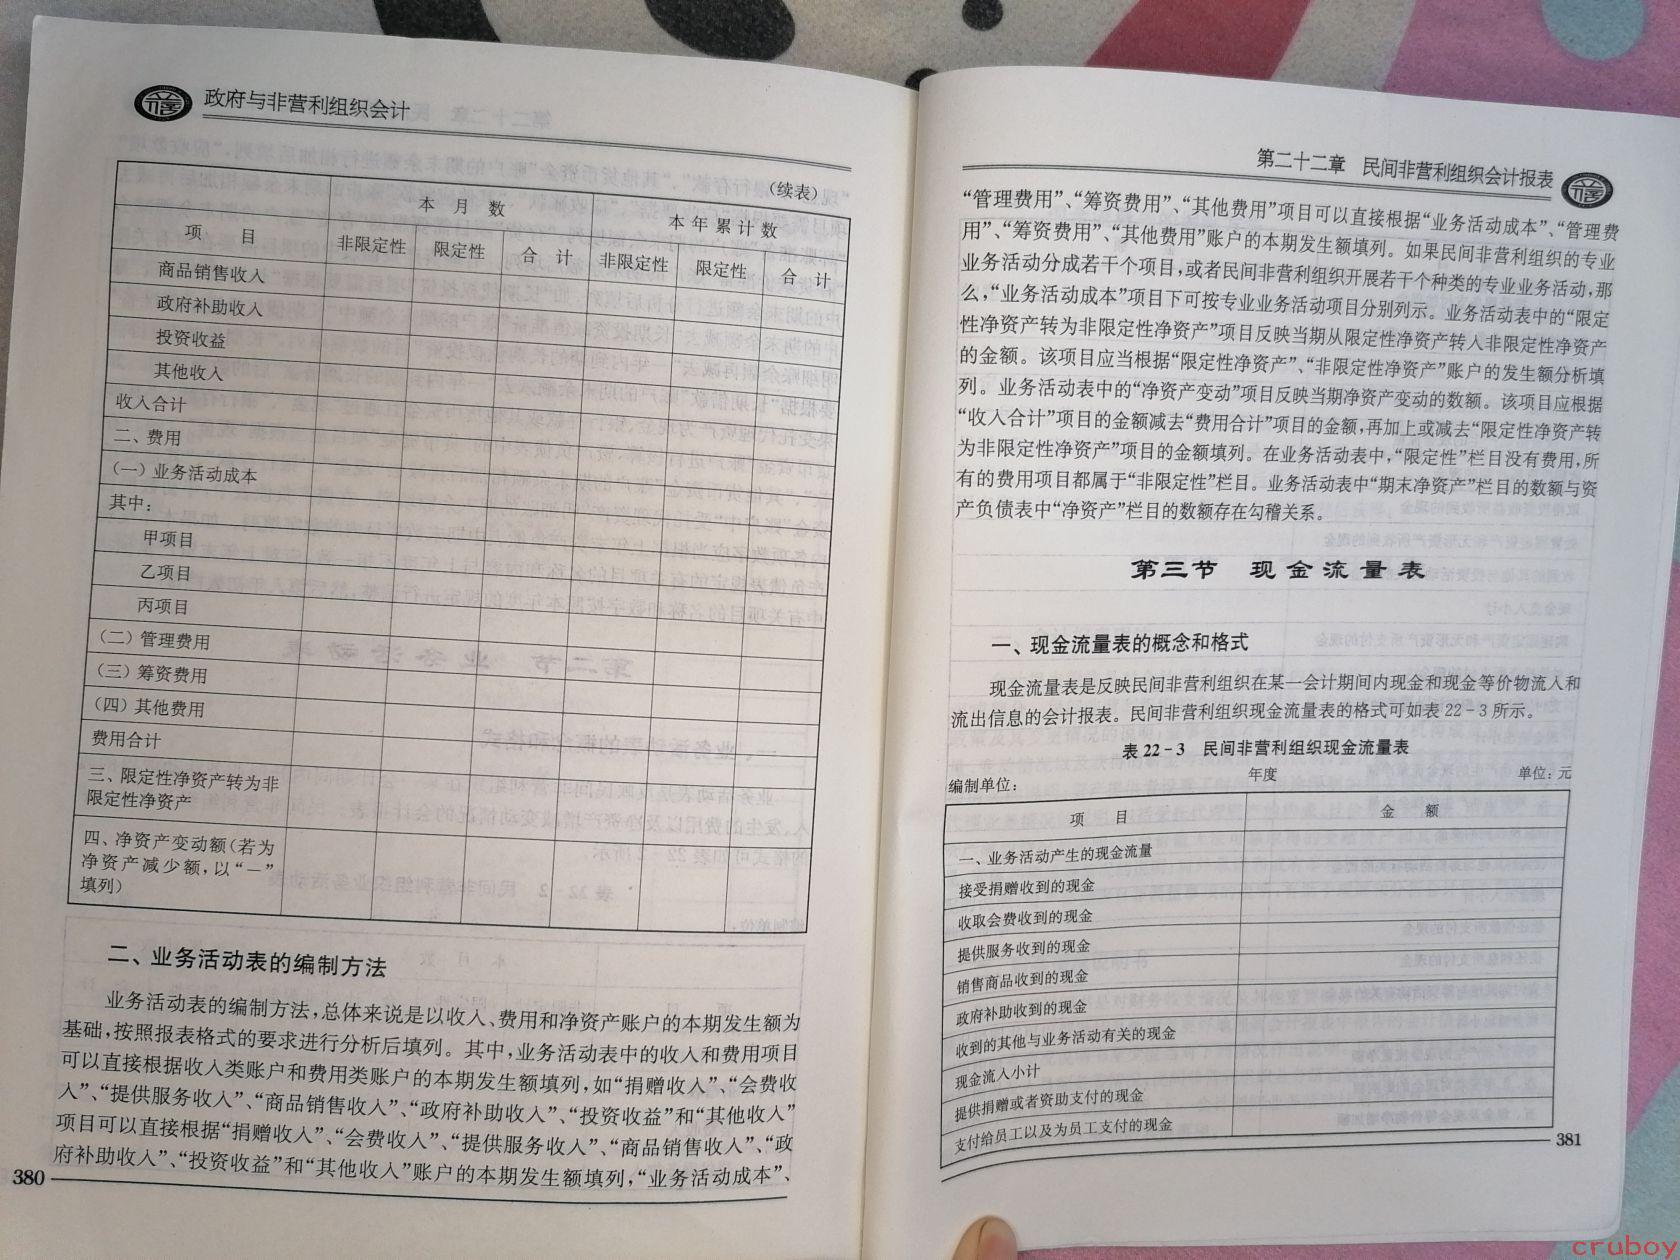 政府与非营利组织会计
(续表)
项 目
本 月 数
本 年 累 计 数
非限定性
限定性
合 计
非限定性
限定性
合 计
商品销售收入
政府补助收入
投资收益
其他收入
收入合计
二、费用
(一)业务活动成本
其中:
甲项目
乙项目
丙项目
(二)管理费用
(三)筹资费用
(四)其他费用
费用合计
三、限定性净资产转为非
限定性净资产
四、净资产变动额(若为
净资产减少额,以“－”
填列)
二、业务活动表的编制方法
业务活动表的编制方法,总体来说是以收入、费用和净资产账户的本期发生额为
基础,按照报表格式的要求进行分析后填列。其中,业务活动表中的收入和费用项目
可以直接根据收入类账户和费用类账户的本期发生额填列,如“捐赠收入”、“会费收
入”、“提供服务收入”、“商品销售收入”、“政府补助收入”、“投资收益”和“其他收入”
项目可以直接根据“捐赠收入”、“会费收入”、“提供服务收入”、“商品销售收入”、“政
府补助收入”、“投资收益”和“其他收入”账户的本期发生额填列,“业务活动成本”、
380
第二十二章 民间非营利组织会计报表
“管理费用”、“筹资费用”、“其他费用”项目可以直接根据“业务活动成本”、“管理费
用”、“筹资费用”、“其他费用”账户的本期发生额填列。如果民间非营利组织的专业
业务活动分成若干个项目,或者民间非营利组织开展若干个种类的专业业务活动,那
么,“业务活动成本”项目下可按专业业务活动项目分别列示。业务活动表中的“限定
性净资产转为非限定性净资产”项目反映当期从限定性净资产转入非限定性净资产
的金额。该项目应当根据“限定性净资产”、“非限定性净资产”账户的发生额分析填
列。业务活动表中的“净资产变动”项目反映当期净资产变动的数额。该项目应根据
“收入合计”项目的金额减去“费用合计”项目的金额,再加上或减去“限定性净资产转
为非限定性净资产”项目的金额填列。在业务活动表中,“限定性”栏目没有费用,所
有的费用项目都属于“非限定性”栏目。业务活动表中“期末净资产”栏目的数额与资
产负债表中“净资产”栏目的数额存在勾稽关系。
第三节 现金流量表
一、现金流量表的概念和格式
现金流量表是反映民间非营利组织在某一会计期间内现金和现金等价物流入和
流出信息的会计报表。民间非营利组织现金流量表的格式可如表22－3所示。
表22－3 民间非营利组织现金流量表
编制单位: 年度 单位:元
项 目 金 额
一、业务活动产生的现金流量
接受捐赠收到的现金
收取会费收到的现金
提供服务收到的现金
销售商品收到的现金
政府补助收到的现金
收到的其他与业务活动有关的现金
现金流入小计
提供捐赠或者资助支付的现金
支付给员工以及为员工支付的现金
381
cruboy